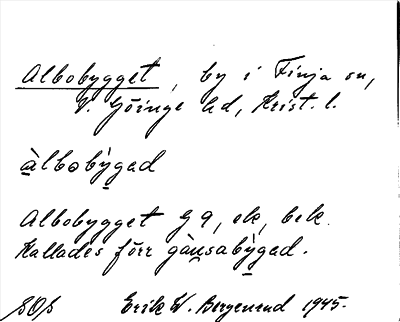 Albobygget, by i Finja sn,
V. Göinge hd, Krist. l.
àlbobỳgad
Albobygget g 9, ek, bek.
Kallades förr gàusabỳgad.
SOS Erik W. Bergenrud 1945.